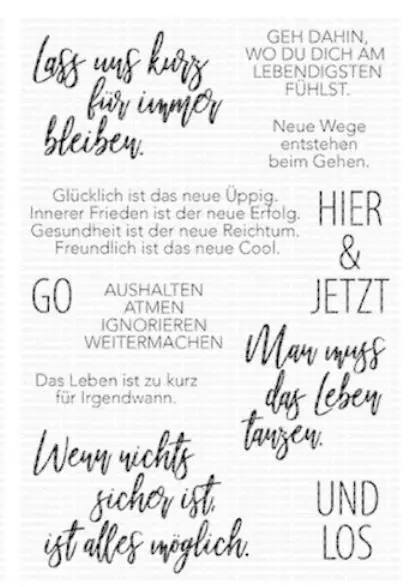 Lass uns kurz
für immer
bleiben.
GEH DAHIN,
WO DU DICH AM
LEBENDIGSTEN
FÜHLST.
Neue Wege
entstehen
beim Gehen.
Glücklich ist das neue Üppig.
Innerer Frieden ist der neue Erfolg.
Gesundheit ist der neue Reichtum.
Freundlich ist das neue Cool.
HIER
&
JETZT
GO
AUSHALTEN
ATMEN
IGNORIEREN
WEITERMACHEN
Man muss
das Leben
tanzen.
Das Leben ist zu kurz
für Irgendwann.
Wenn nichts
sicher ist,
ist alles möglich.
UND
LOS